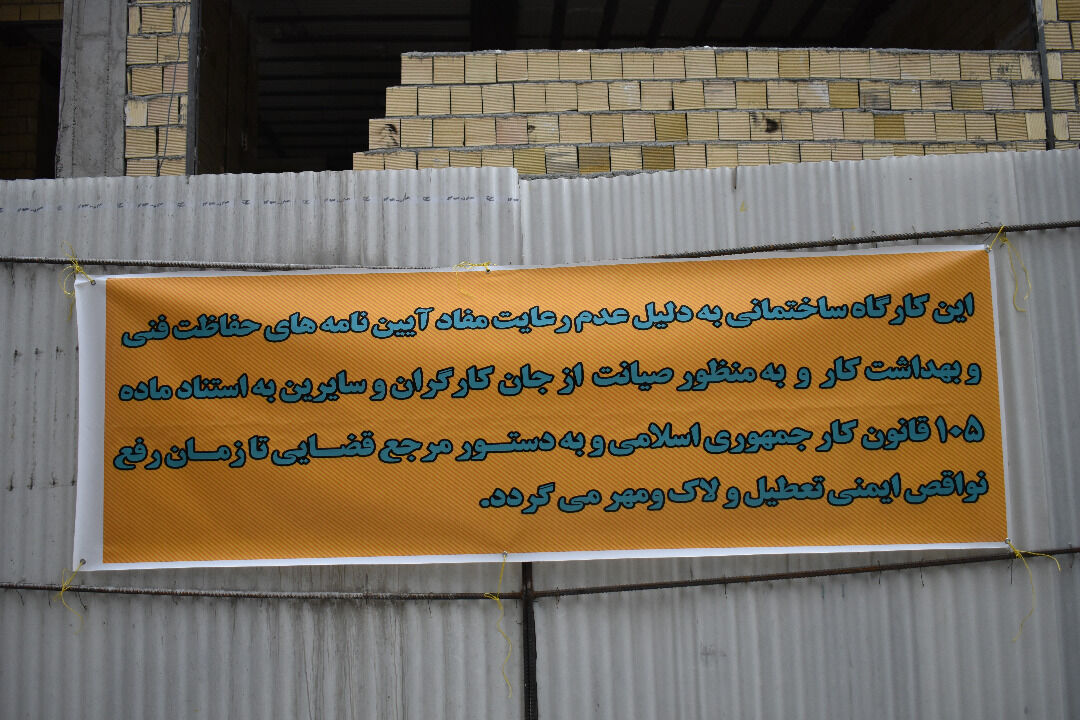 این کارگاه ساختمانی به دلیل عدم رعایت مفاد آیین نامه های حفاظت فنی
و بهداشت کار و به منظور صیانت از جان کارگران و سایرین به استناد ماده
۱۰۵ قانون کار جمهوری اسلامی و به دستور مرجع قضایی تا زمان رفع
نواقص ایمنی تعطیل و لاک ومهر می گردد.